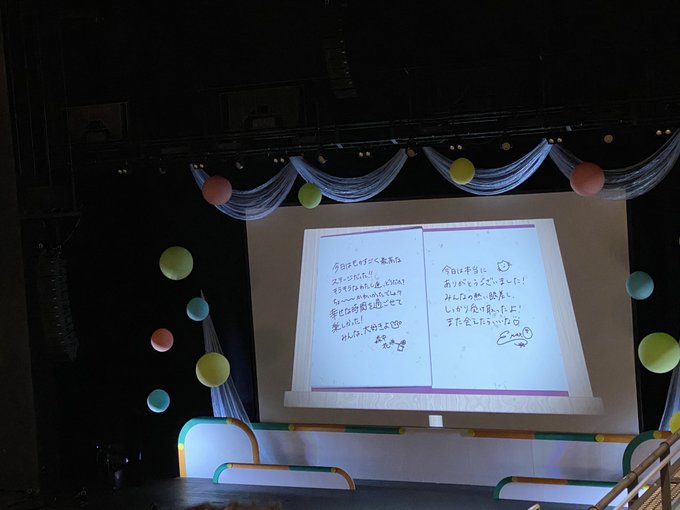 今日はものすごく最高な
ステージだった!!
キラキラなわたし達、どうだった?
ちょ〜〜かわいかったでしょ?
幸せな時間を過ごせて
楽しかった!
みんな、大好きよ
今日は本当に
ありがとうございました!
みんなの熱い鼓動、
しっかり受け取ったよ!
また会えたらいいな